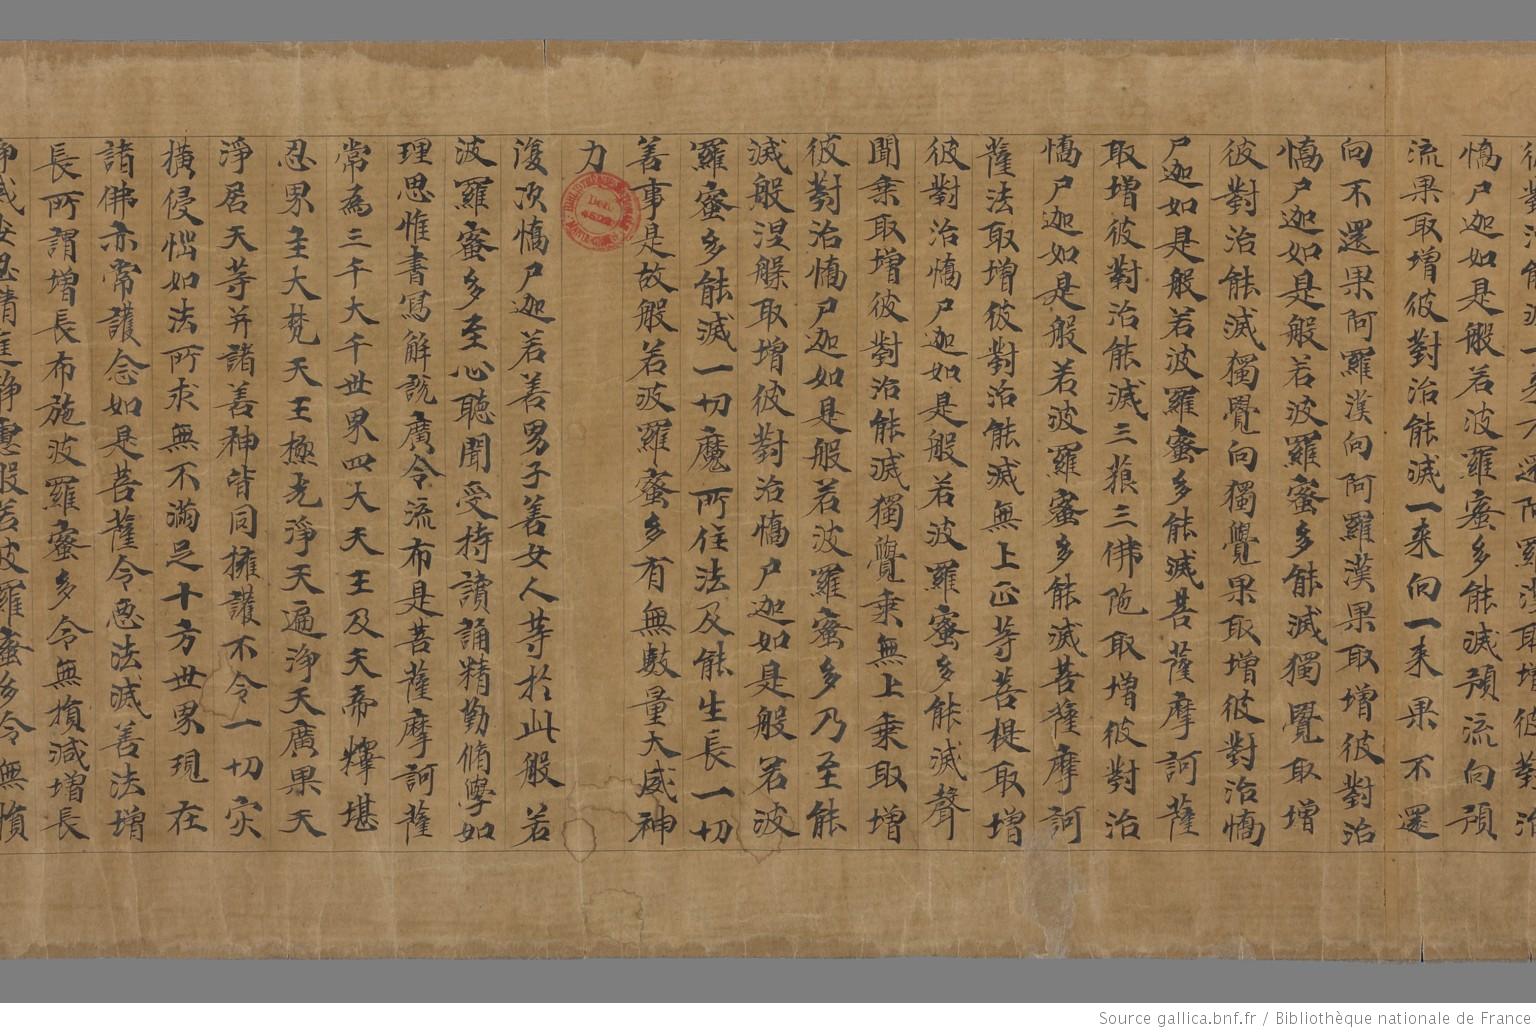 憍尸迦如是般若波羅蜜多能滅預流向預
流果取增彼對治能滅一来向一来果不還
向不還果阿羅漢向阿羅漢果取增彼對治
憍尸迦如是般若波羅蜜多能滅獨覺取增
彼對治能滅獨覺向獨覺果取增彼對治憍
尸迦如是般若波羅蜜多能滅菩薩摩訶薩
取增彼對治能滅三藐三佛陁取增彼對治
憍尸迦如是般若波羅蜜多能滅菩薩摩訶
薩法取增彼對治能滅無上正等菩提取增
彼對治憍尸迦如是般若波羅蜜多能滅聲
聞乘取增彼對治能滅獨覺乘無上乘取增
彼對治憍尸迦如是般若波羅蜜多乃至能
滅般涅槃取增彼對治憍尸迦如是般若波
羅蜜多能滅一切魔所住法及能生長一切
善事是故般若波羅蜜多有無數量大威神
力
復次憍尸迦若善男子善女人等於此般若
波羅蜜多至心聽聞受持讀誦精勤脩學如
理思惟書寫解說廣令流布是菩薩摩訶薩
常為三千大千世界四大天王及天帝釋堪
忍界主大梵天王極光淨天遍淨天廣果天
淨居天等并諸善神皆同擁護不令一切灾
橫侵惱如法所求無不滿足十方世界現在
諸佛亦常護念如是菩薩令惡法滅善法增
長所謂增長布施波羅蜜多令無損減增長
淨戒安忍精進靜慮般若波羅蜜多令無損
Source gallica.bnf.fr / Bibliothèque nationale de France